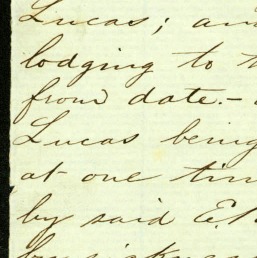 Lucas; and
lodging to t
from date. -
Lucas being
at one tim
by said E.
by sickness